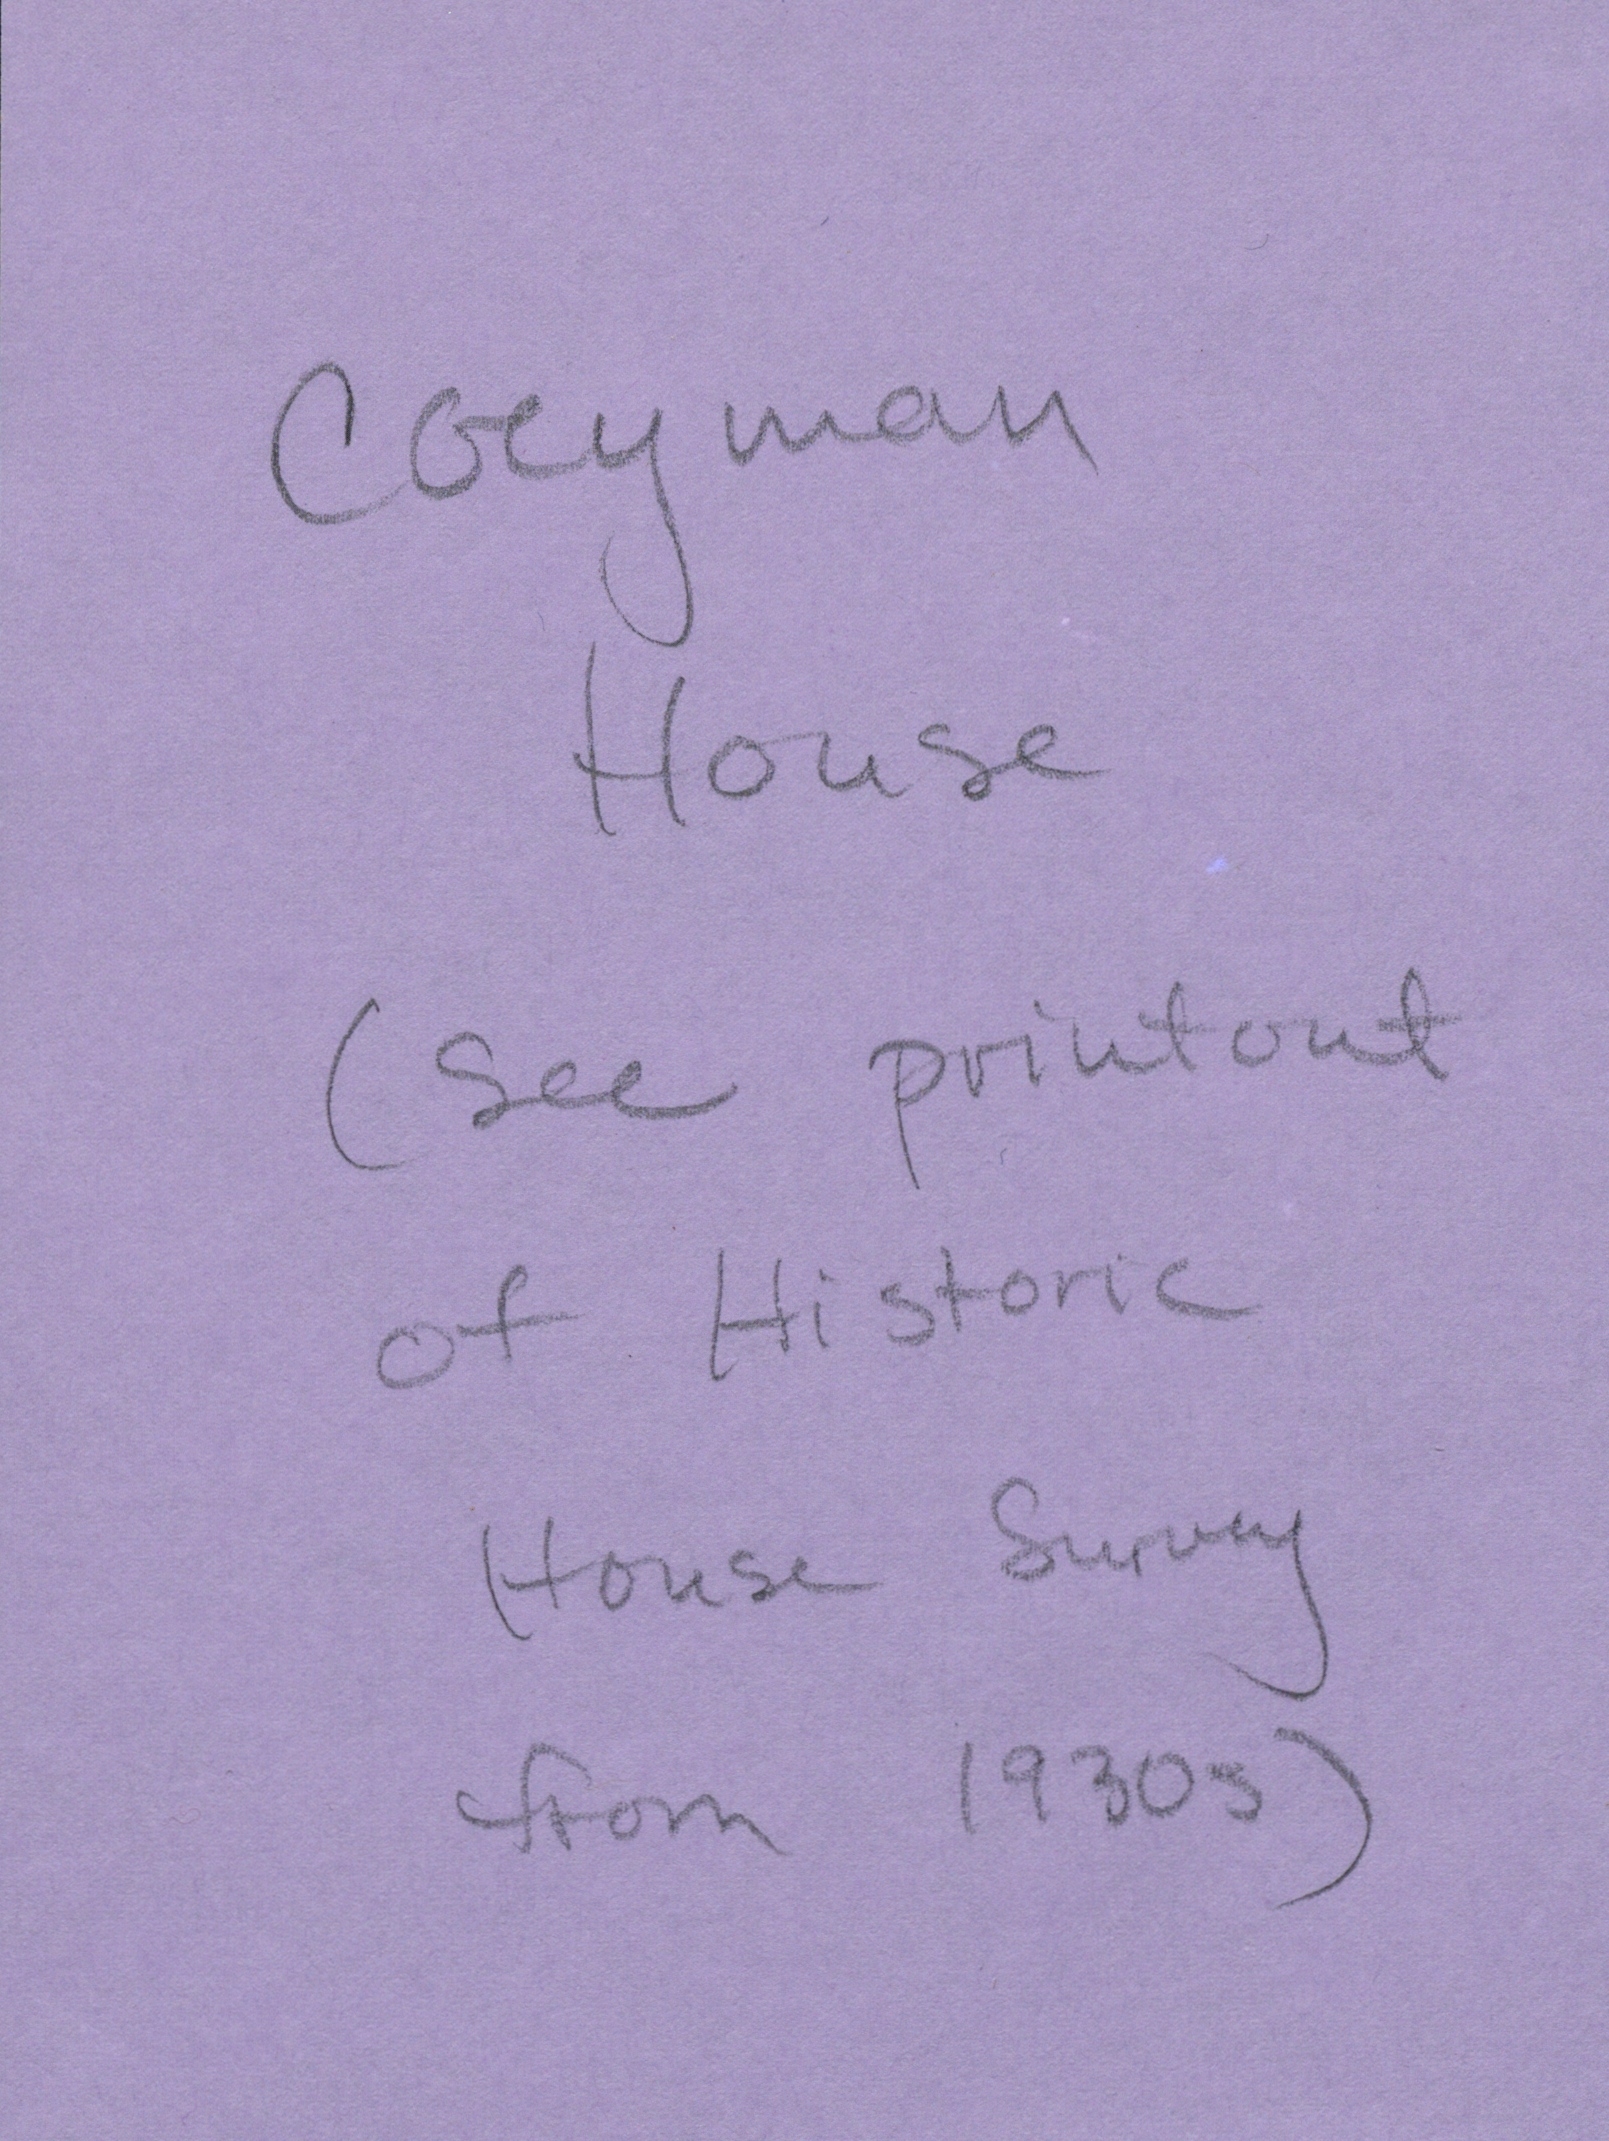 Coeyman
House
(see printout
of Historic
House Survey
from 1930s)